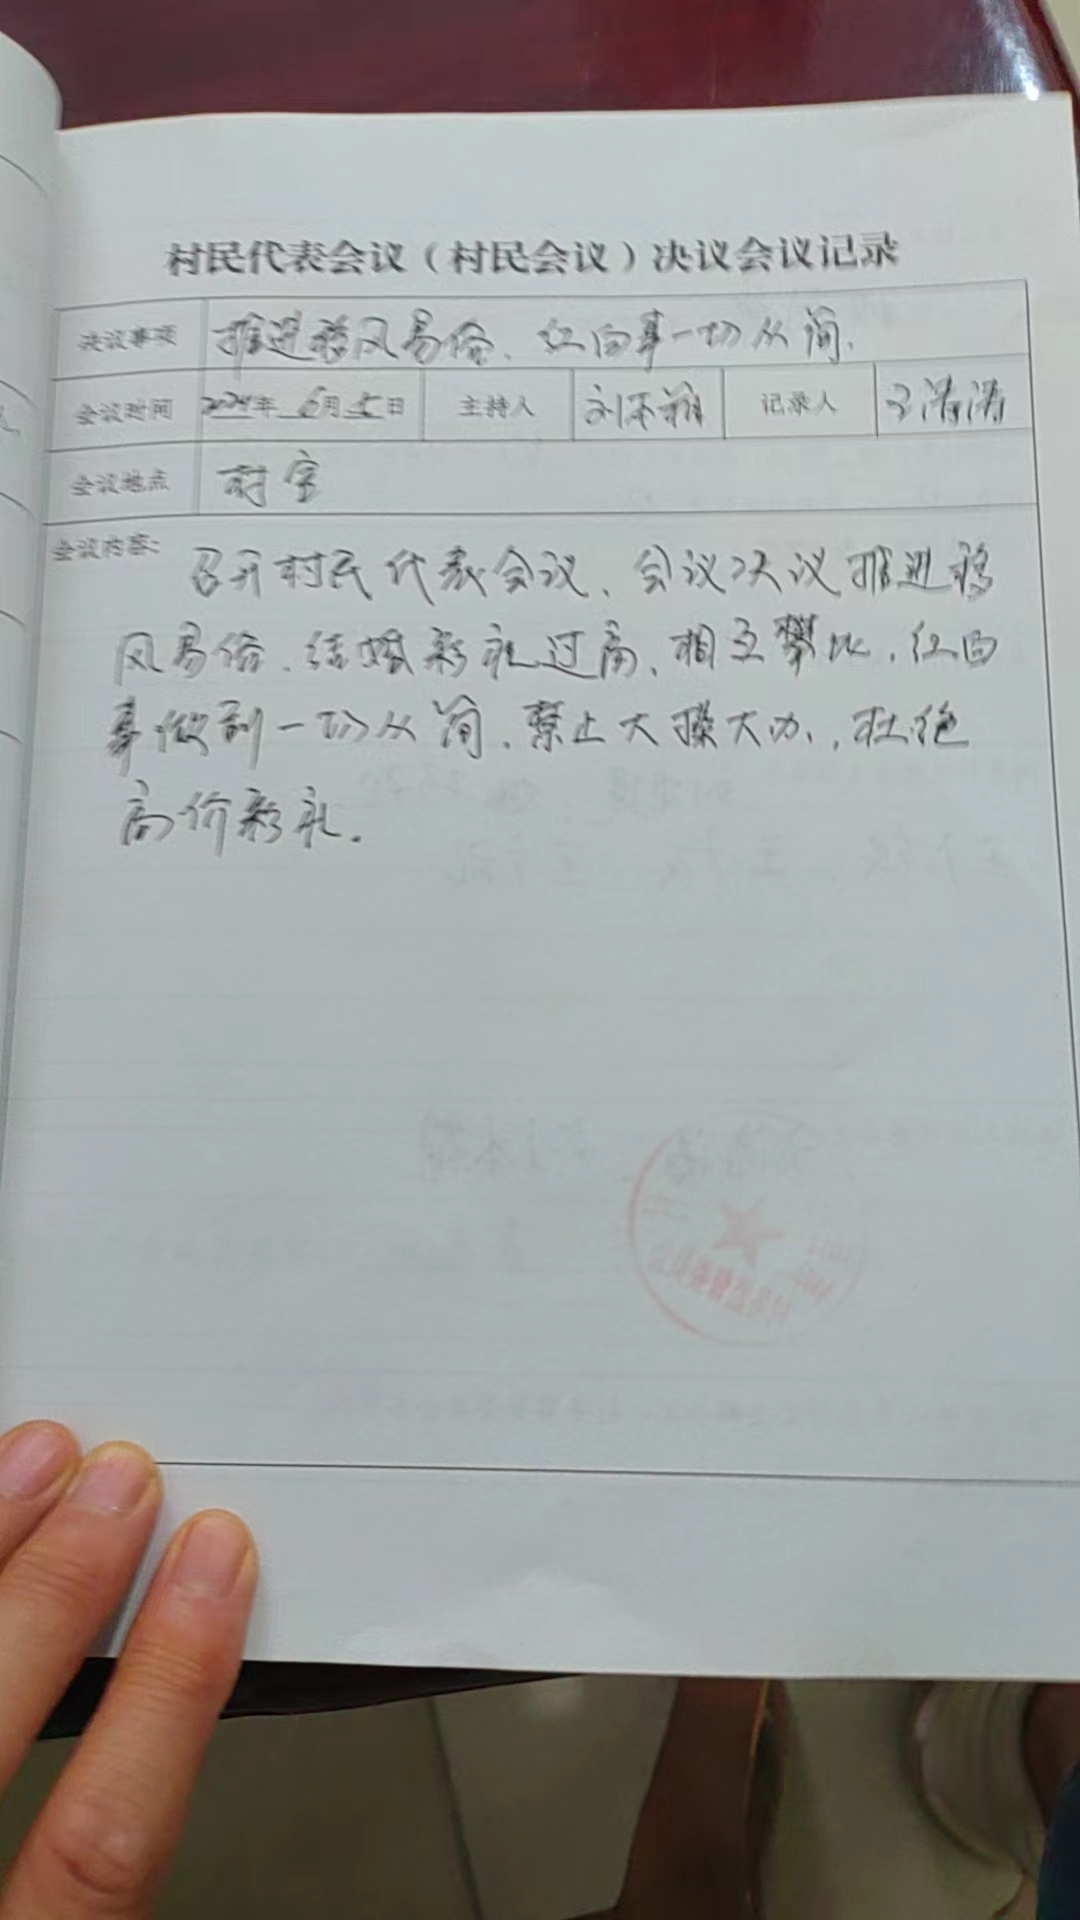 村民代表会议（村民会议）决议会议记录
决议事项 推进移风易俗、红白事一切从简.
会议时间 2024年 6月 5日 主持人 刘本翔 记录人 清清
会议地点 村室
会议内容: 召开村民代表会议、会议决议推进移
风易俗、结婚彩礼过高、相互攀比，红白
事做到一切从简、禁止大操大办，杜绝
高价彩礼.